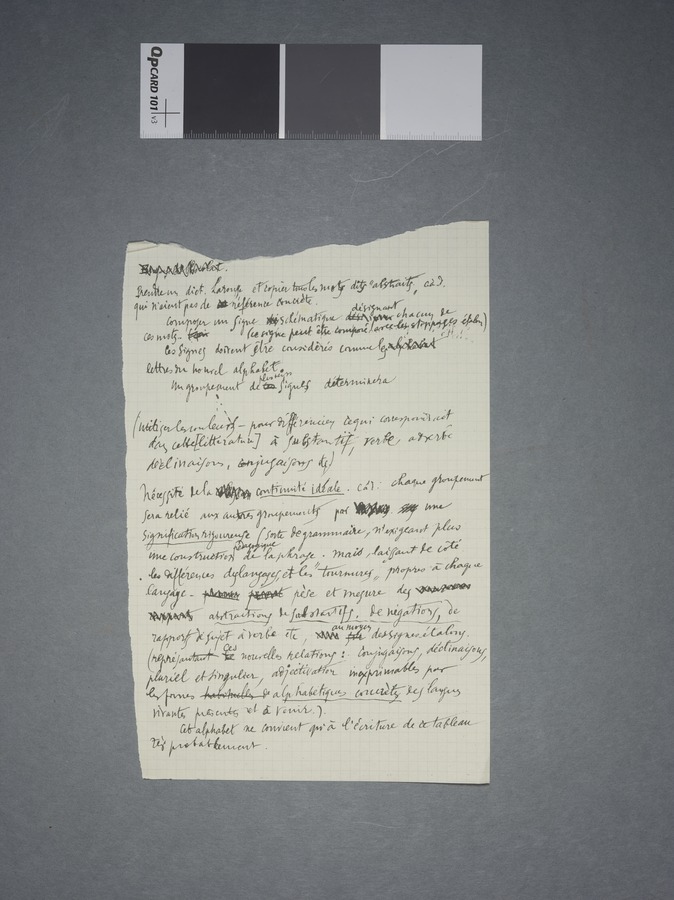 QPCARD 101 v3
Prendre un dict. Larousse et copier tous les mots dits "abstraits", càd.
qui n'aient pas de référence concrète.
Composer un signe schématique désignant chacun de
ces mots. (ce signe peut être composé avec les stoppages étalon)
Ces signes doivent être considérés comme les
lettres du nouvel alphabet.
Un groupement de plusieurs signes déterminera
(utiliser les couleurs – pour différencier ce qui correspondrait
dans cette [littérature] à substantif, verbe, adverbe
déclinaisons, conjugaisons etc)
Nécessité de la continuité idéale. càd: chaque groupement
sera relié aux autres groupements par une
signification rigoureuse (sorte de grammaire, n'exigeant plus
une construction pédagogique de la phrase. mais, laissant de côté
les différences des langages, et les "tournures" propres à chaque
langage – pèse et mesure des
abstractions de substantifs, de négations, de
rapports de sujet à verbe etc, au moyen des signes étalons.
(représentant ces nouvelles relations: conjugaisons, déclinaisons,
pluriel et singulier, adjectivation inexprimables par
les formes alphabétiques concrètes des langues
vivantes présentes et à venir.).
Cet alphabet ne convient qu'à l'écriture de ce tableau
très probablement.